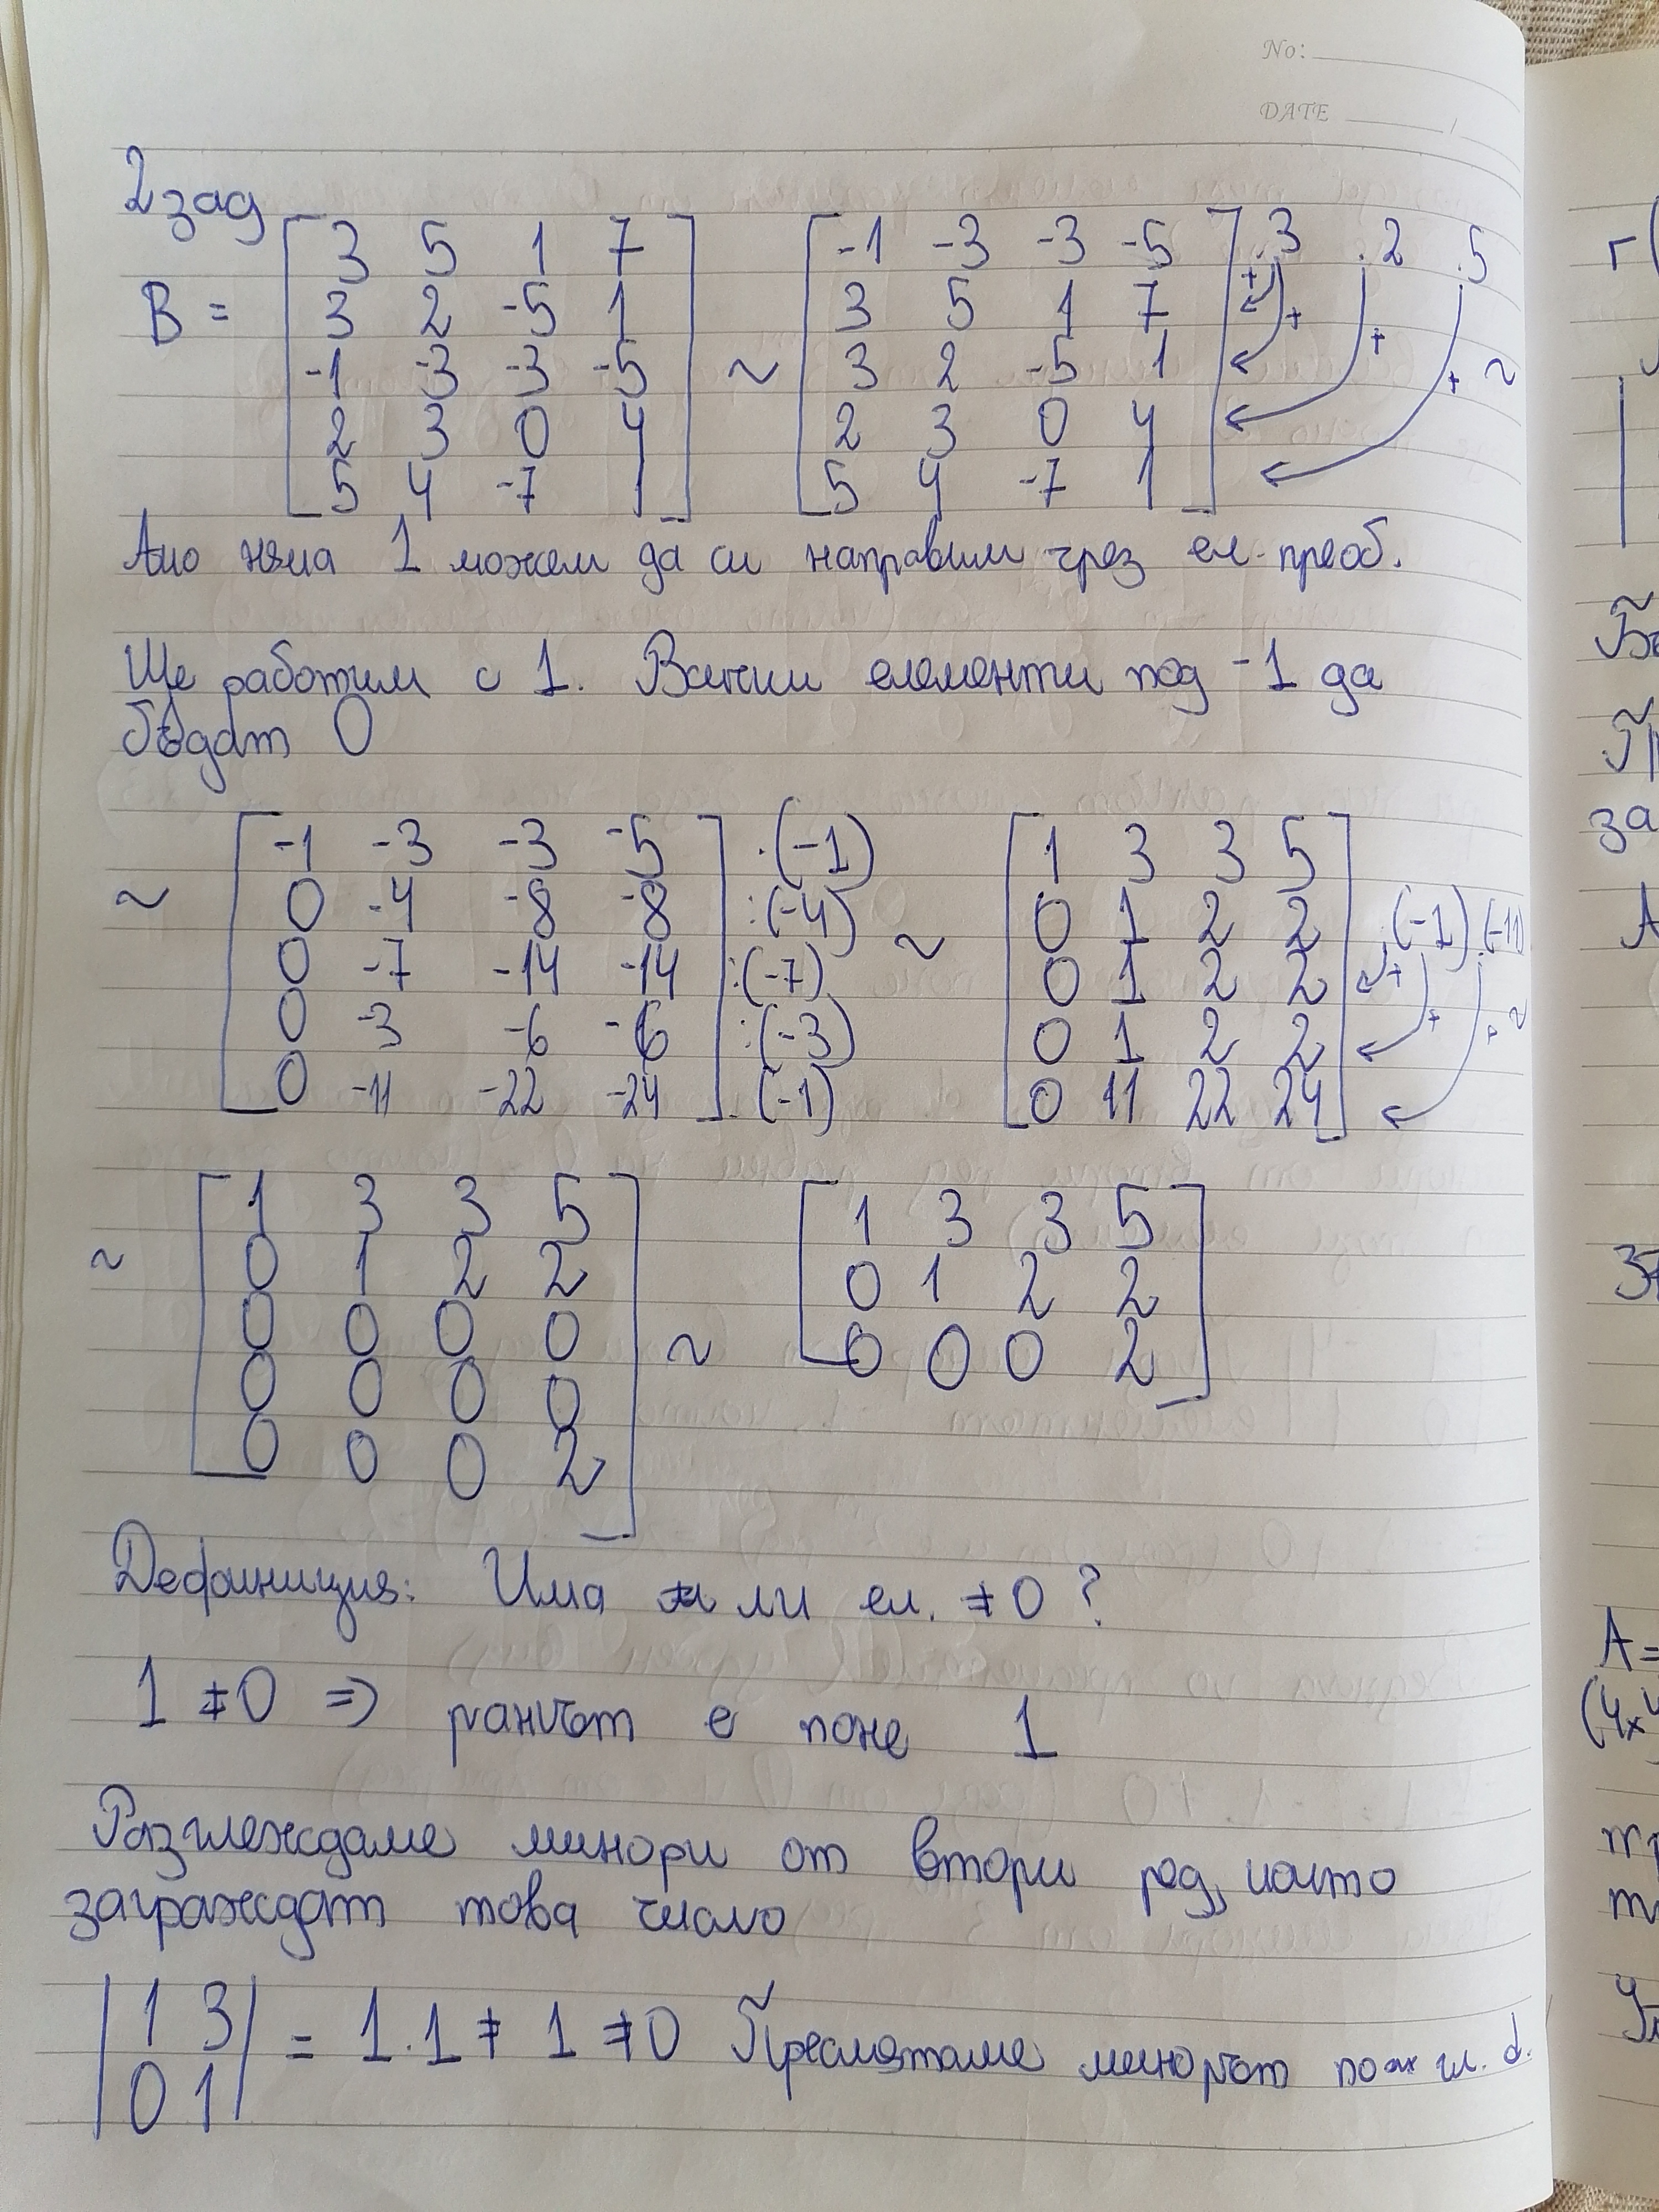 No:
DATE
2 зад
B = [3 5 1 7; 3 2 -5 1; -1 -3 -3 -5; 2 3 0 4; 5 4 -7 1] ~ [-1 -3 -3 -5; 3 5 1 7; 3 2 -5 1; 2 3 0 4; 5 4 -7 1] .3 .2 .5 + + + + ~
Ако няма 1 можем да си направим чрез ел. преоб.
Ще работим с 1. Всички елементи под -1 да
бъдат 0
~ [-1 -3 -3 -5; 0 -4 -8 -8; 0 -7 -14 -14; 0 -3 -6 -6; 0 -11 -22 -24] .(-1) :(-4) :(-7) :(-3) .(-1) ~ [1 3 3 5; 0 1 2 2; 0 1 2 2; 0 1 2 2; 0 11 22 24] .(-1) .(-11) + + + ~
~ [1 3 3 5; 0 1 2 2; 0 0 0 0; 0 0 0 0; 0 0 0 2] ~ [1 3 3 5; 0 1 2 2; 0 0 0 2]
Дефиниция: Има ли ел. ≠ 0 ?
1 ≠ 0 => рангът е поне 1
Разглеждаме минори от втори ред, които
заграждат това число
|1 3; 0 1| = 1.1 ≠ 1 ≠ 0 Пресмятаме минорът по гл. d.